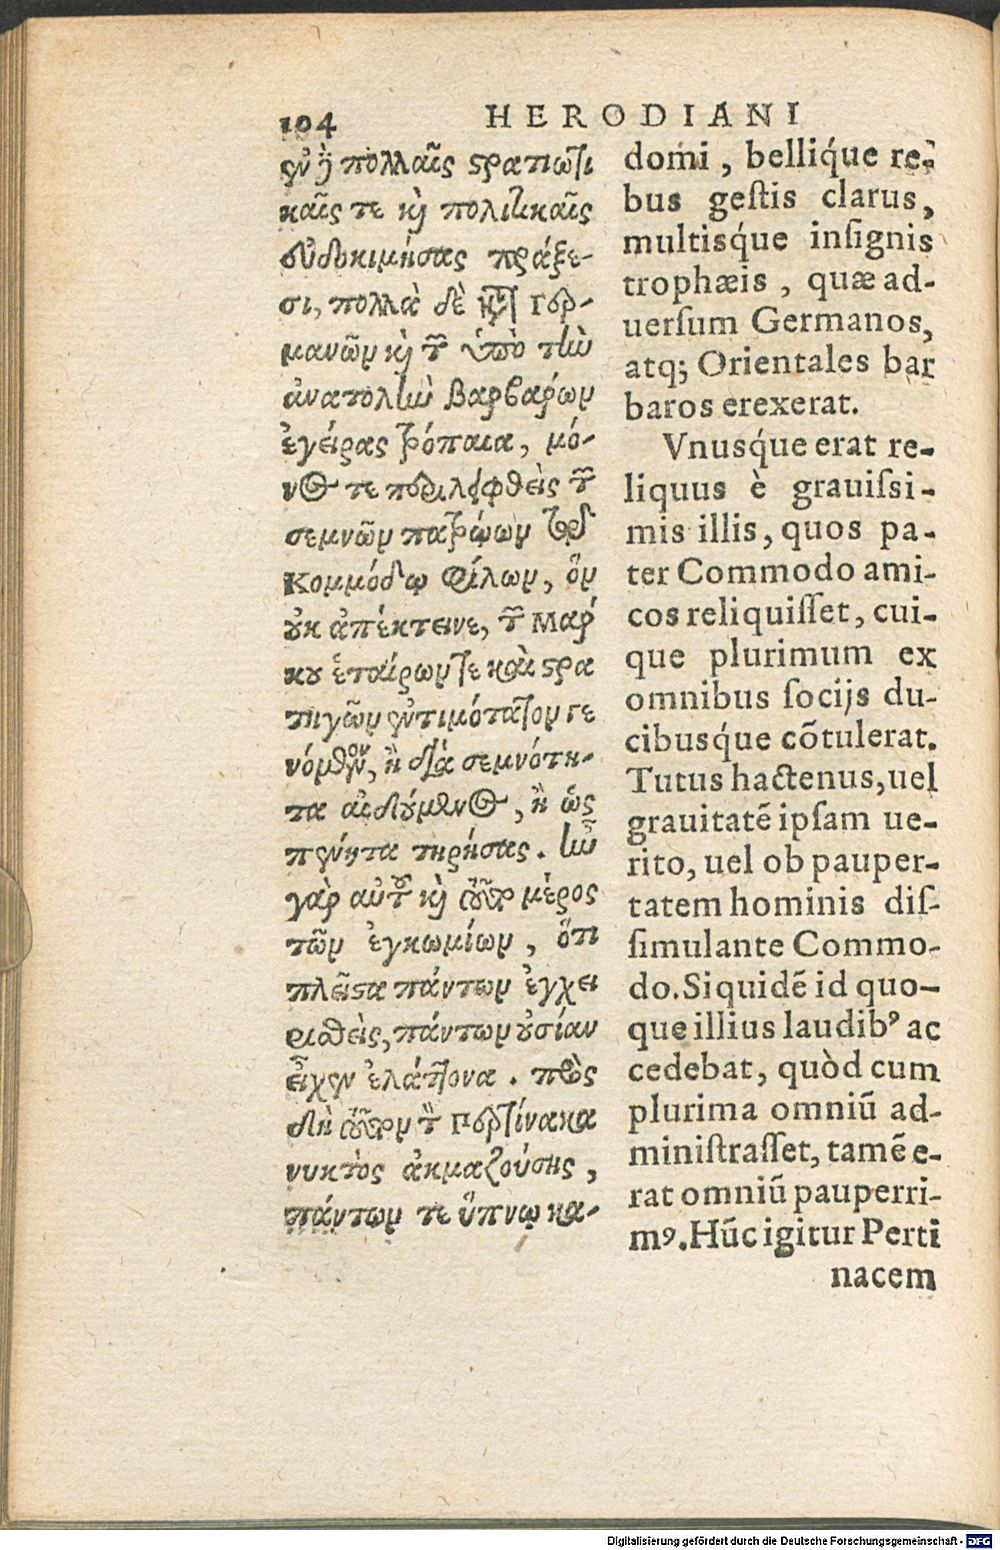 104 HERODIANI
ἐν ᾗ πολλαῖς στρατιωτι
καῖς τε καὶ πολιτικαῖς
εὐδοκιμήσας πράξε-
σι, πολλὰ δὲ κατὰ Γερ-
μανῶν καὶ τῶν ὑπὸ τὴν
ἀνατολὴν βαρβάρων
ἐγείρας τρόπαια, μό-
νος τε περιλειφθεὶς τῶν
σεμνῶν πατρῴων τοῦ
Κομμόδῳ φίλων, ὃν
οὐκ ἀπέκτεινε, τῶν Μαρ
κου ἑταίρων τε καὶ στρα
τηγῶν ἐντιμότατον γε
νόμενον, ἢ διὰ σεμνότη-
τα αἰδούμενος, ἢ ὡς
πένητα τηρήσας. ἦν
γὰρ αὐτοῦ καὶ τοῦτο μέρος
τῶν ἐγκωμίων, ὅτι
πλεῖστα πάντων ἐγχει
ρισθεὶς, πάντων οὐσίαν
εἶχεν ἐλάττονα. πρὸς
δὴ τοῦτον τὸν Περτίνακα
νυκτὸς ἀκμαζούσης,
πάντων τε ὕπνῳ κα-
domi, belliq́ue re-
bus gestis clarus,
multisq́ue insignis
trophæis, quæ ad-
uersum Germanos,
atq; Orientales bar
baros erexerat.
Vnusq́ue erat re-
liquus è grauissi-
mis illis, quos pa-
ter Commodo ami-
cos reliquisset, cui-
que plurimum ex
omnibus socijs du-
cibusq́ue cõtulerat.
Tutus hactenus, uel
grauitatẽ ipsam ue-
rito, uel ob pauper-
tatem hominis dis-
simulante Commo-
do. Siquidẽ id quo-
que illius laudibꝰ ac
cedebat, quòd cum
plurima omniũ ad-
ministrasset, tamẽ e-
rat omniũ pauperri-
mꝰ. Hũc igitur Perti
nacem
Digitalisierung gefördert durch die Deutsche Forschungsgemeinschaft - DFG